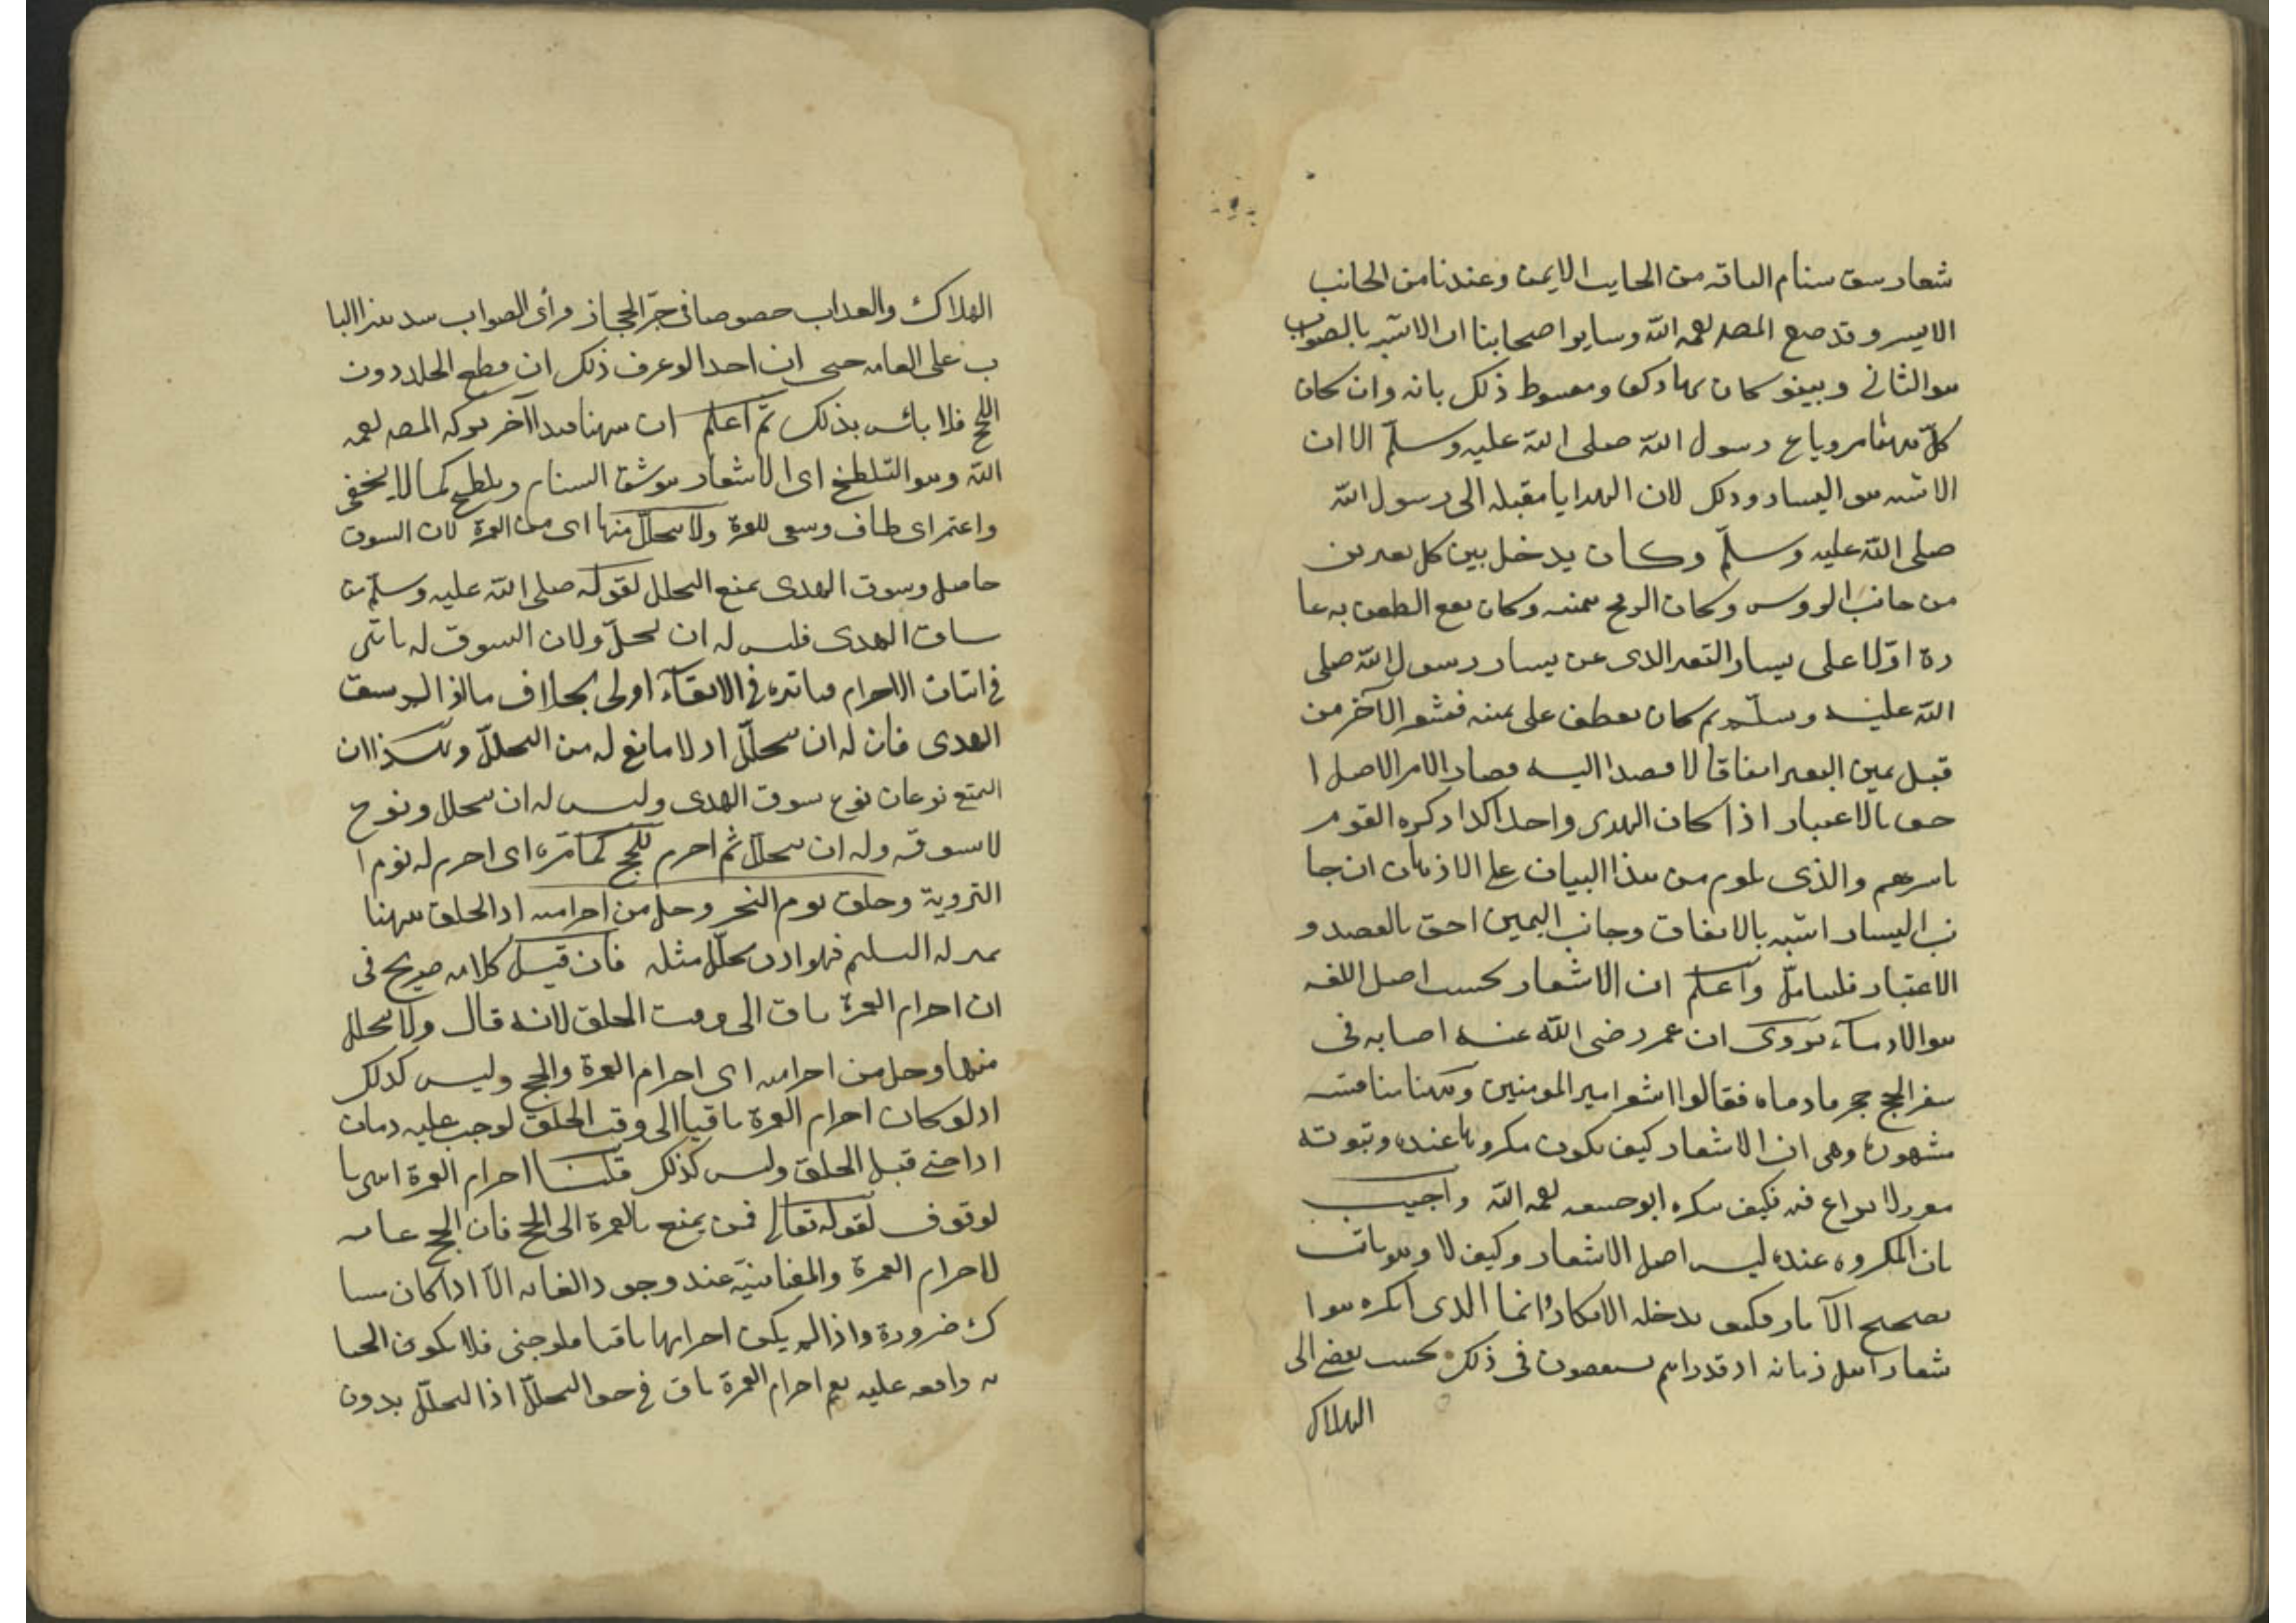 شعار سق سنام الناقه من الجانب الايمن وعندنا من الجانب
الايسر وقد صح المصـ رحمه الله وسايرا صحابنا ان الاشبه بالصواب
هو الثاني وبينو كان ومبسوط ذلك بانه وان كان
كلّ منهما مرويا ع رسول الله صلى الله عليه وسلّم الا ان
الاشبه هو اليسار وذلك لان الهدايا مقبله الى رسول الله
صلى الله عليه وسلّم وكان يدخل بين كل بعيرين
من جانب الرووس وكان الرمح بيمينه وكان يقع الطعن به عا
دة اوّلا على يسار البعير الذى عن يسار رسول الله صلى
الله عليه وسلّم ثم كان يعطف على يمينه فيشعر الآخر من
قبل يمين البعير اتفاقا لا قصدا اليه فصار الامر الاصل ا
حق بالاعتبار اذا كان الهدى واحدا كذا ذكره القوم
باسرهم والذى يلوح من هذا البيان على الاذهان ان جا
نب اليسار اشبه بالاتفاق وجانب اليمين احق بالقصد و
الاعتبار فليتامّل واعلم ان الاشعار بحسب اصل اللغه
هو الادمآء يروى ان عمر رضى الله عنه اصابه فى
سفر الحج حجر فادماه فقالوا اشعر امير المومنين وههنا مناقشه
مشهورة وهى ان الاشعار كيف يكون مكروها عنده وثبوته
مقرر لا نزاع فيه فكيف يكره ابو حنيفه رحمه الله واجيب
بان المكروه عنده ليس اصل الاشعار وكيف لا وهو ثابت
بصحيح الآثار فكيف يدخله الانكار وانما الذى انكره هو ا
شعار اهل زمانه اذ قد راهم يستقصون فى ذلك بحيث يفضى الى
الهلاك
الهلاك والعذاب خصوصا فى حرّ الحجاز فرأى الصواب سد هذا البا
ب على العامه حتى ان احدا لو عرف ذلك ان قطع الجلد دون
اللحم فلا بأس بذلك ثم اعلم ان ههنا قيدا آخر تركه المصـ رحمه
الله وهو التلطخ اى الاشعار هو شق السنام وتلطيخ كما لا يخفى
واعتمر اى طاف وسعى للعمرة ولا يتحلل منها اى من العمرة لان السوق
حاصل وسوق الهدى يمنع التحلل لقوله صلى الله عليه وسلّم من
ساق الهدى فليس له ان يحلّ ولان السوق له تاثير
فى اثبات الاحرام فتاثيره فى الابقآء اولى بخلاف ما اذا لم يسق
الهدى فان له ان يتحلّل اذ لا مانع له من التحلّل وهكذا ان
التمتع نوعان نوع سوق الهدى وليس له ان يتحلل ونوع
لا سوق وله ان يتحلّل ثم احرم للحج كما مرّ اى احرم له يوم ا
التروية وحلق يوم النحر وحل من احراميه اذ الحلق ههنا
بمنزله التسليم فهو اذن يحلّل مثله فان قيل كلامه صريح فى
ان احرام العمرة باق الى وقت الحلق لانه قال ولا يتحلل
منها وحل من احراميه اى احرام العمرة والحج وليس كذلك
اذ لو كان احرام العمرة باقيا الى وقت الحلق لوجب عليه دمان
اذا جنى قبل الحلق وليس كذلك قلنا احرام العمرة انتهى با
لوقوف لقوله تعالى فمن يمتع بالعمرة الى الحج فان الحج غايه
لاحرام العمرة والمغا ينتهى عند وجود الغايه الّا اذا كان
ك ضرورة واذا لم يكن احرامها باقيا فلو جنى فلا يكون الجنا
يه واقعه عليه نعم احرام العمرة باق فى حق التحلّل اذ التحلّل بدون